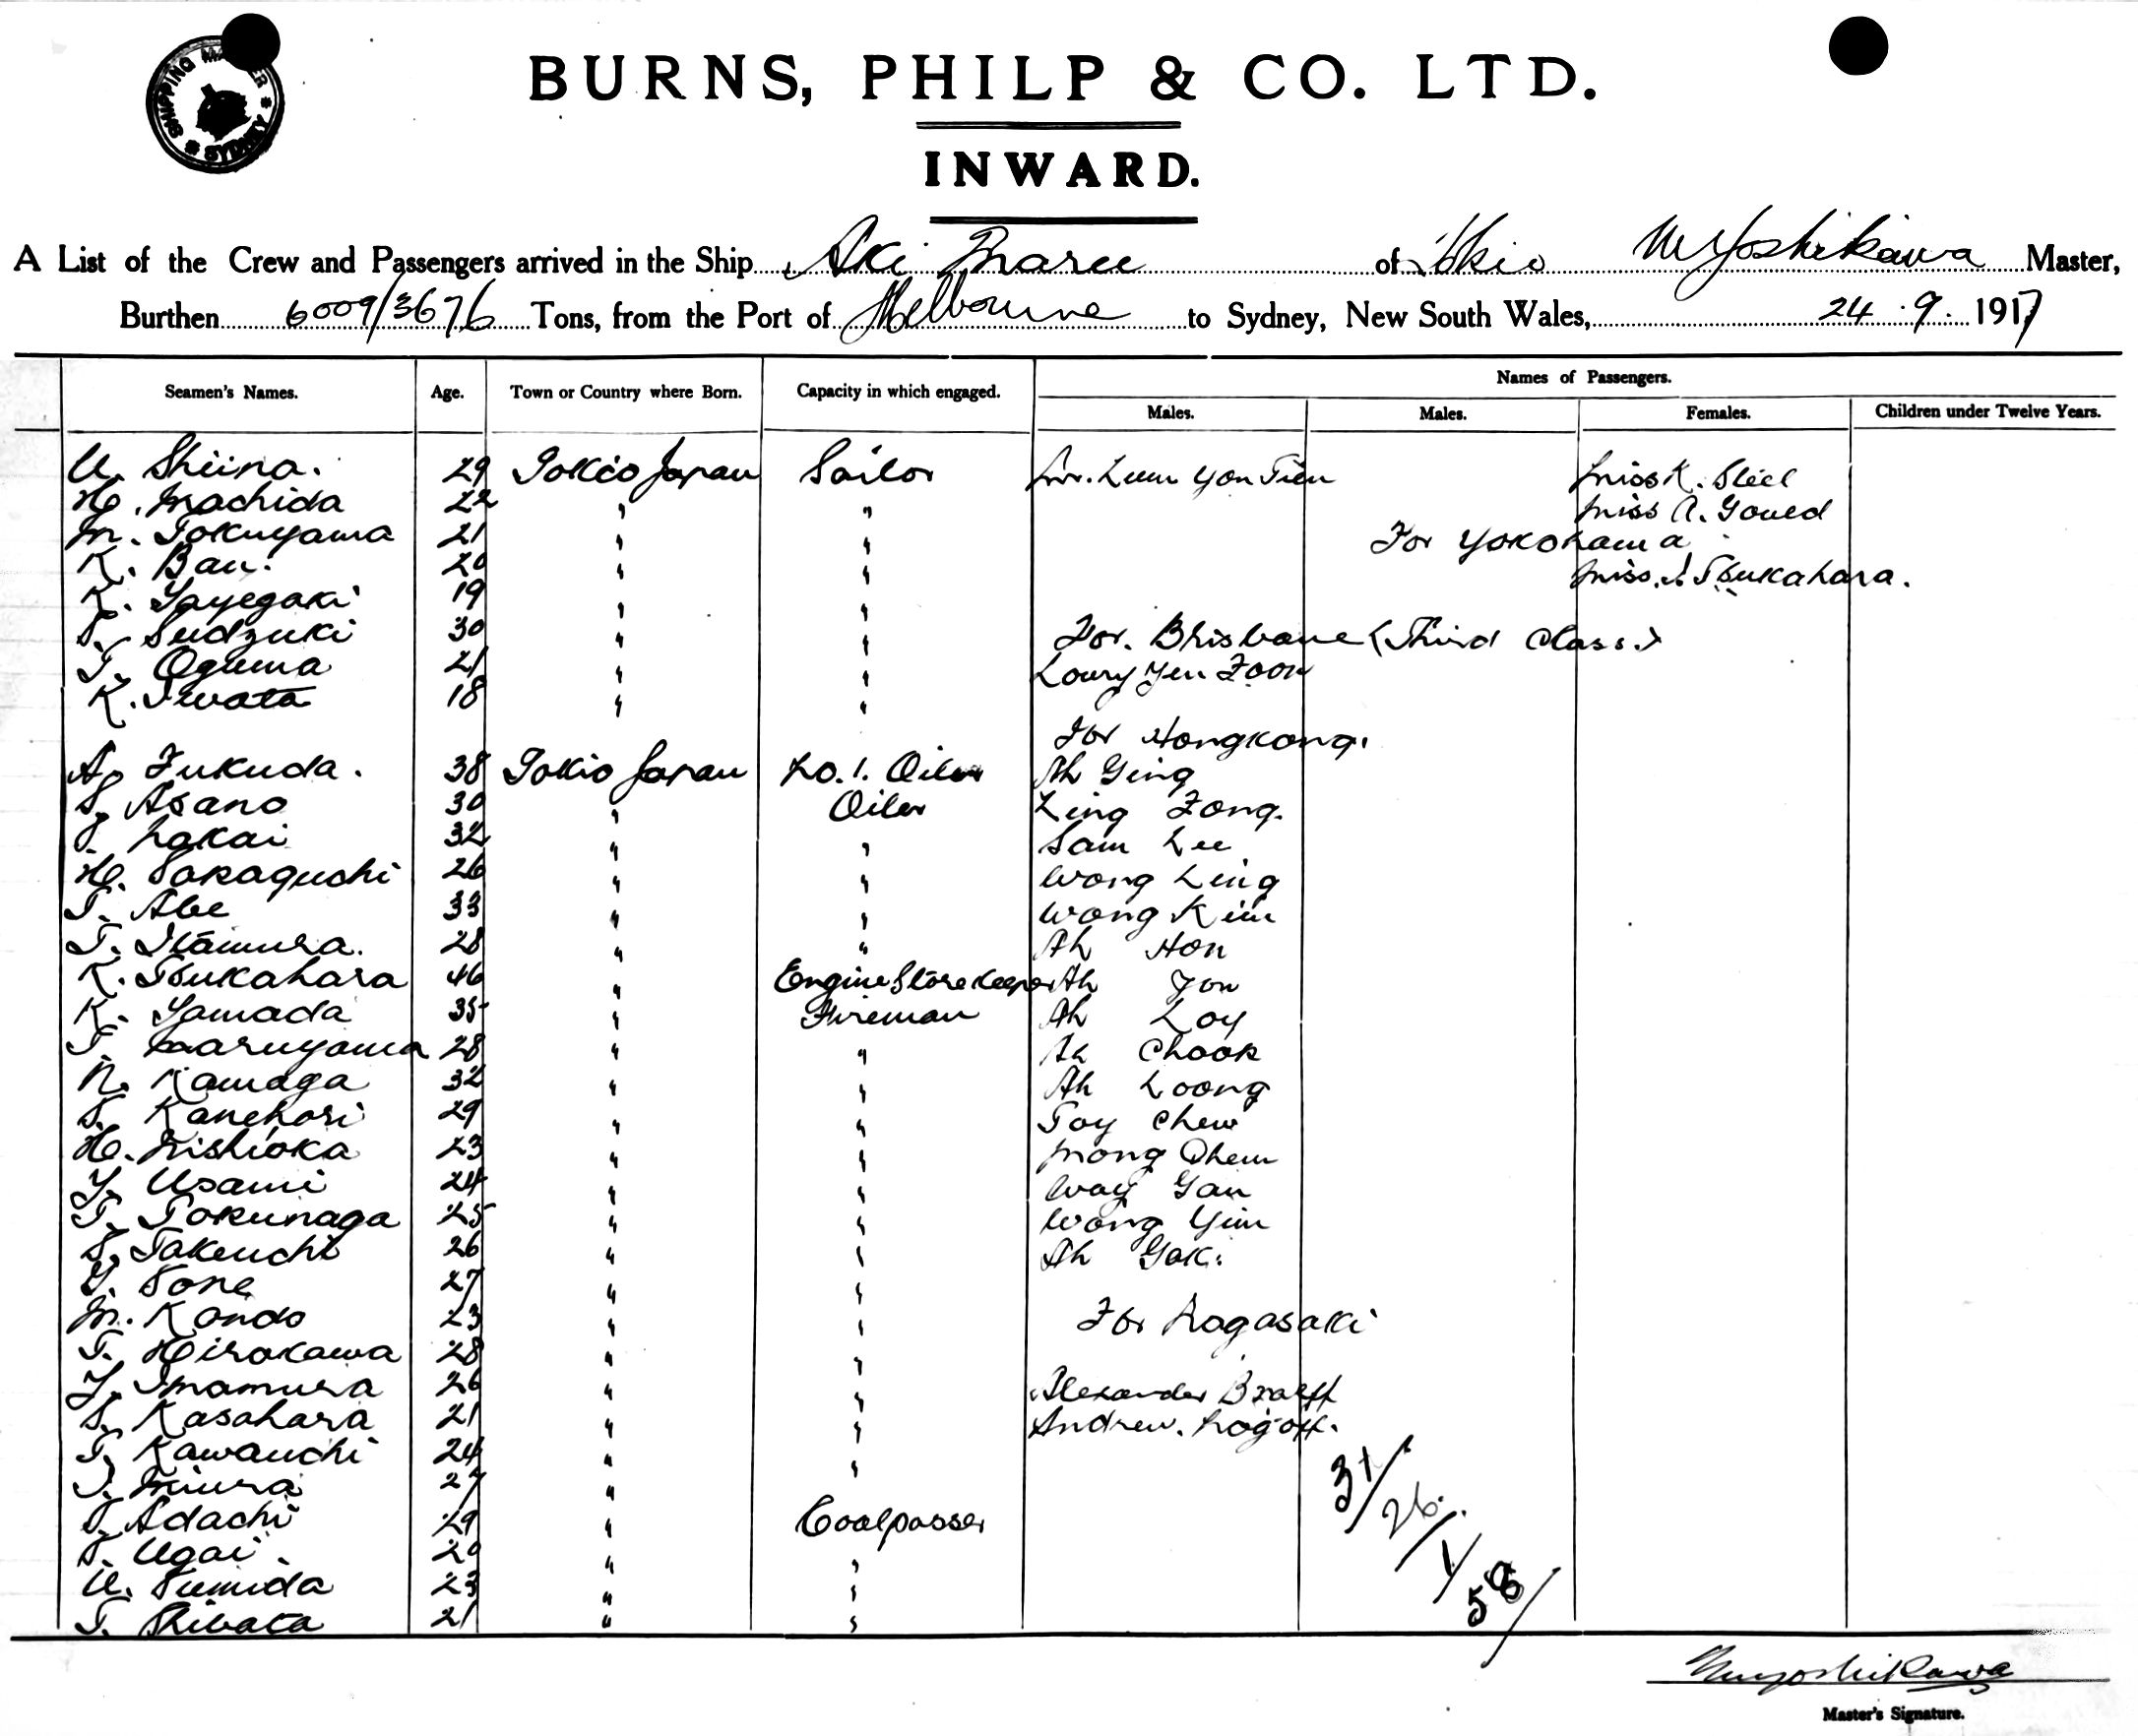 SHIPPING MASTER SYDNEY
BURNS, PHILP & CO. LTD.
INWARD.
A List of the Crew and Passengers arrived in the Ship Aki Maru of Tokio M Yoshikawa Master,
Burthen 6009/3676 Tons, from the Port of Melbourne to Sydney, New South Wales, 24.9.1917
Seamen's Names. Age. Town or Country where Born. Capacity in which engaged. Names of Passengers.
Males. Males. Females. Children under Twelve Years.
U. Shiina. 29 Tokio Japan Sailor Mr. Lum Yon Tien Miss K. Steel
H. Machida 22 " " Miss A. Gould
M. Tokuyama 21 " " For Yokohama
K. Ban. 20 " " Miss. Tsukahara.
K. Yayegaki 19 " "
S. Sudzuki 30 " " For. Brisbane (Third Class.)
T. Oguma 21 " " Lowry Yen Foon
K. Iwata 18 " "
For Hongkong.
A. Fukuda. 38 Tokio Japan No. 1. Oiler Ah Ging
S. Asano 30 " Oiler Ling Fong.
J. Nakai 32 " " Sam Lee
H. Sakaguchi 26 " " Wong Ling
T. Abe 33 " " Wong Kim
T. Itamura. 28 " " Ah Hon
K. Tsukahara 46 " Engine Storekeeper Ah Fon
K. Yamada 35 " Fireman Ah Loy
T. Maruyama 28 " " Ah Chook
N. Kamaga 32 " " Ah Loong
S. Kanehori 29 " " Toy Chew
H. Nishioka 23 " " Mong Chem
Y. Usami 24 " " Way Gan
T. Tokunaga 25 " " Wong Yim
S. Takeuchi 26 " " Ah Gok.
Y. Sone 27 " "
M. Kondo 23 " " For Nagasaki
T. Hirokawa 28 " "
Y. Imamura 26 " " Alexander Braeff
S. Kasahara 21 " " Andrew. Nogoff.
T. Kawauchi 24 " "
T. Miura 27 "
T. Adachi 29 " Coalpasser
S. Ugai 20 " "
U. Sumida 23 " "
T. Shibata 21 " "
31/26/1/58/
M Yoshikawa
Master's Signature.